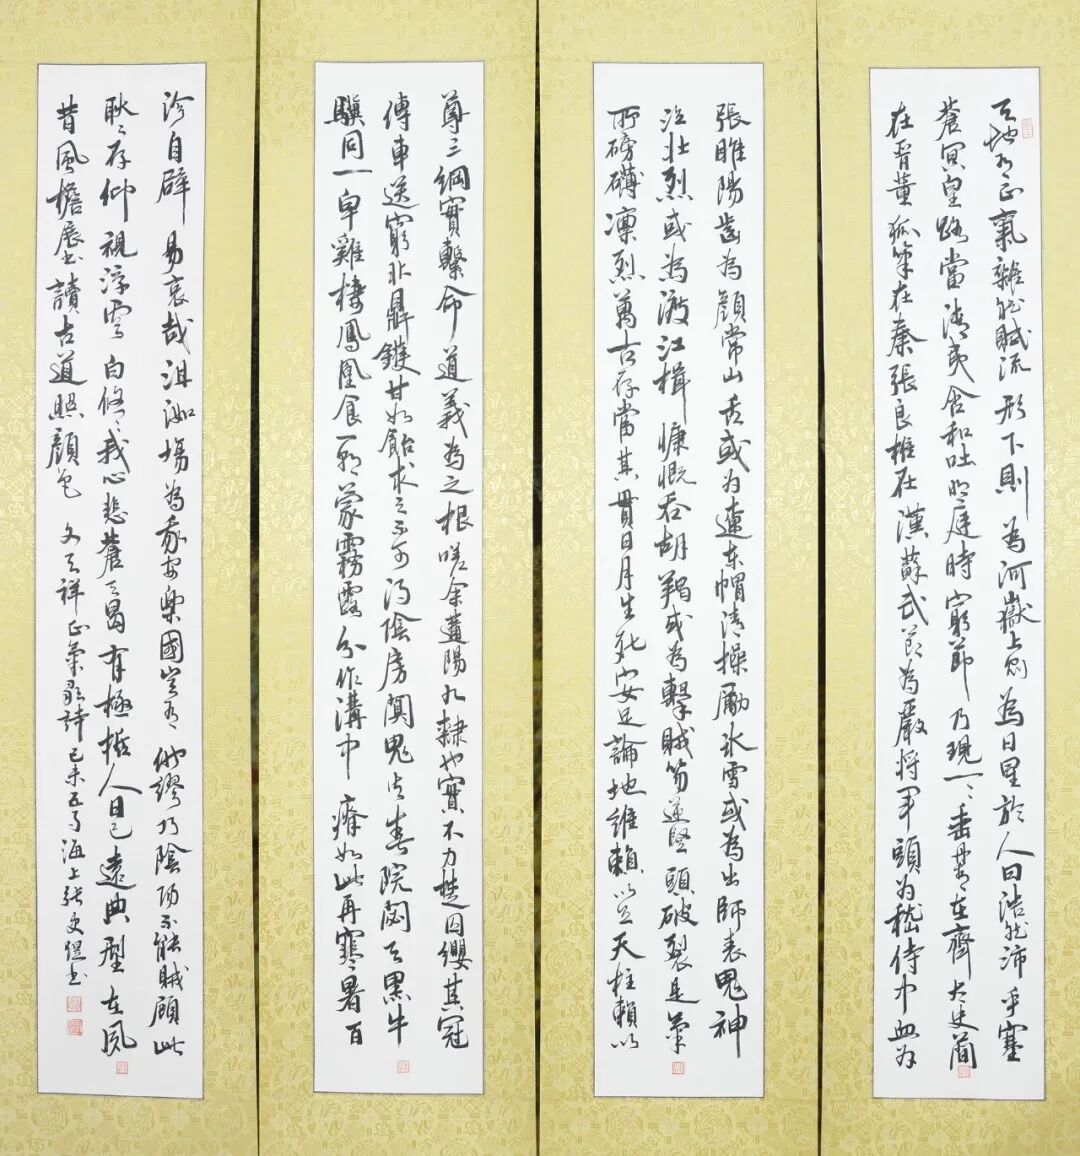 天地有正氣雜然賦流形下則為河嶽上則為日星於人曰浩然沛乎塞
蒼冥皇路當清夷含和吐明庭時窮節乃現一々垂丹青在齊太史簡
在晉董狐筆在秦張良椎在漢蘇武節為嚴將軍頭為嵇侍中血為
張睢陽齒為顏常山舌或為遼东帽清操厲冰雪或為出師表鬼神
泣壯烈或為渡江楫慷慨吞胡羯或為擊賊笏逆豎頭破裂是氣
所磅礴凜烈萬古存當其貫日月生死安足論地維賴以立天柱賴以
尊三綱實繫命道義為之根嗟余遘陽九隸也實不力楚囚纓其冠
傳車送窮北鼎鑊甘如飴求之不可得陰房闃鬼火春院閟天黑牛
驥同一皁雞棲鳳凰食一朝蒙霧露分作溝中瘠如此再寒暑百
沴自辟易哀哉沮洳場為我安樂國豈有他繆巧陰陽不能賊顧此
耿々存仰視浮雲白悠々我心悲蒼天曷有極哲人日已遠典型在夙
昔風檐展书讀古道照顏色 文天祥正氣歌詩己未五月海上張书